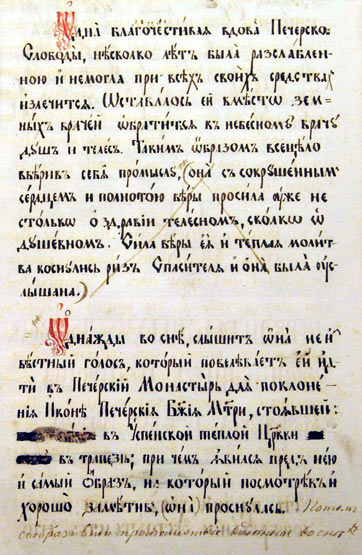 Ѿдна благочестивая вдова Печерско:
Слободы, нѣсколько лѣтъ была разслаблен:
ною и немогла при всѣхъ своихъ средства
излечится. Ѡставалось ей вмѣсто зем:
ныхъ врачей ѡбратится къ небесному врачу
душъ и телесъ. Такимъ ѡбразомъ всецѣло
ввѣривъ себя промыслу, (она съ сокрушеннымъ
сердцемъ и полнотою вѣры просила уже не
столько о здравіи телесномъ, сколько ѡ
душевномъ. Сила вѣры ея и теплая молит
ва коснулись ризъ Спасителя и она была ус
лышана.)
Ѿднажды во снѣ, слышитъ ѡна неи
вѣстный голосъ, который повелѣваетъ ей ид
ти въ Печерскій Монастырь для поклоне:
нія Иконѣ Печерскія Бжія Мтри, стоявшей:
въ Успенской теплой Церкви
въ трапезѣ; при чемъ явился предъ нею
и самый ѡбразъ, на который посмотрѣвъ и
хорошо замѣтивъ, (ѡна) проснулась. Потомъ